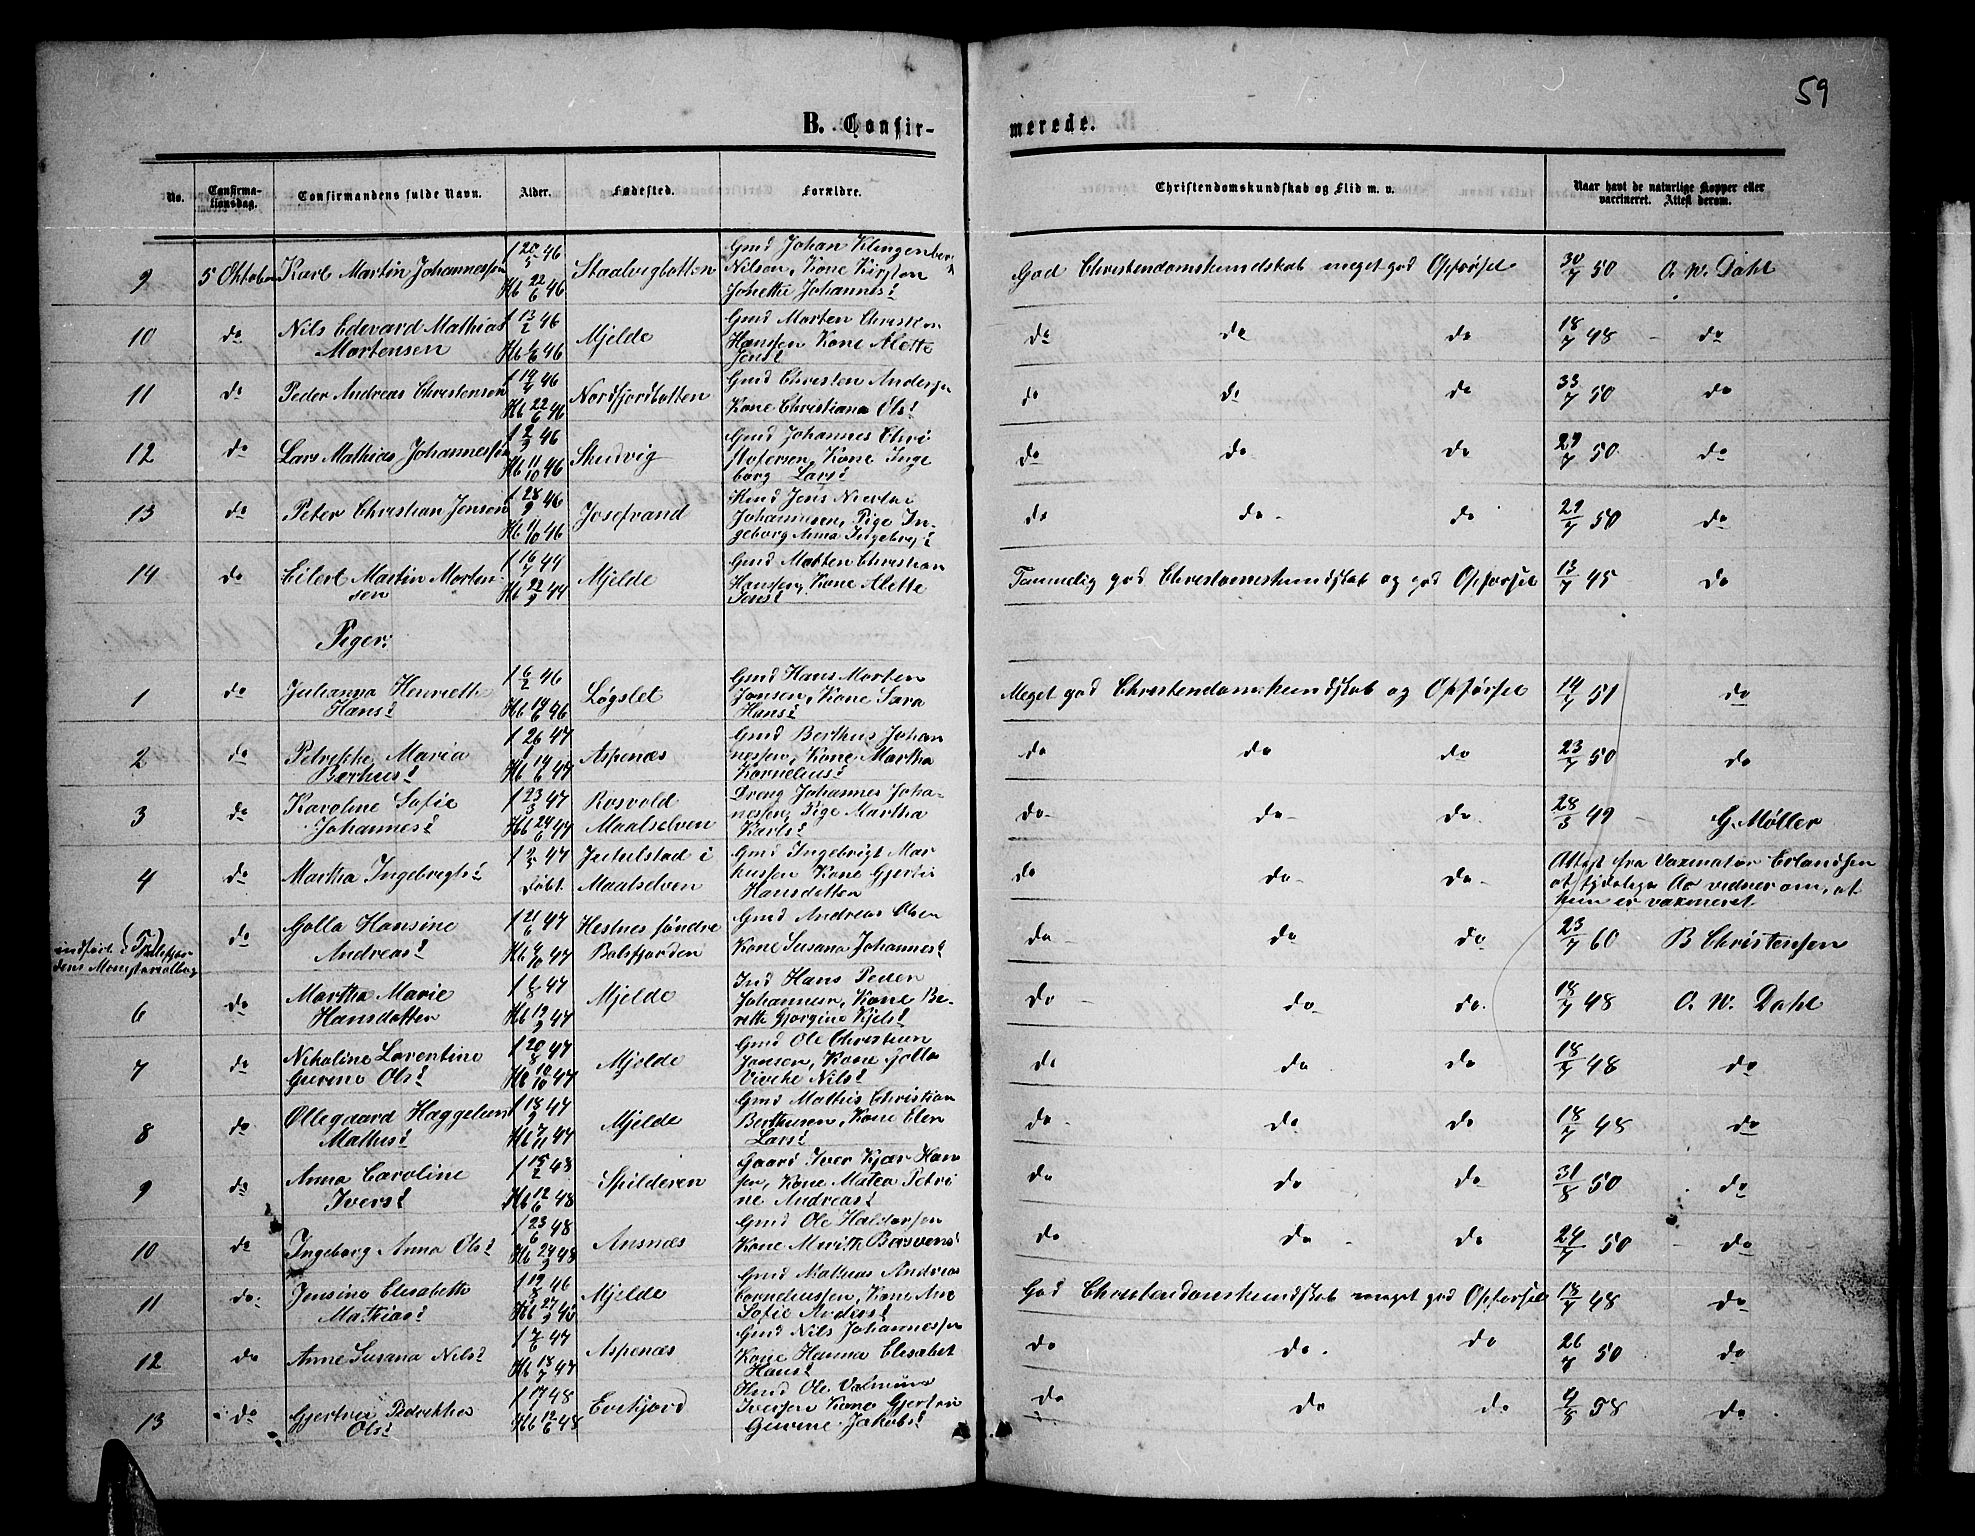 59
B. Confir-
merede.
No. Confirma-tionsdag. Confirmandens fulde Navn. Alder. Fødested. Forældre. Christendomskundskab og Flid m. v. Naar havt de naturlige Kopper eller vaccineret. Attest derom.
9 5 Oktober Karl Martin Johannessen f 20/5 46 Hb 22/6 46 Staalvigbotten Gmd Johan Klingenberg Nilsen, Kone Kirsten Johette Johannesd God Christendomskundskab meget god Opførsel 30/7 50 O. W. Dahl
10 do Nils Edevard Mathias Mortensen f 13/2 46 Hb 6/6 46 Mjelde Gmd Morten Christian Hanssen Kone Alette Jensd do do do 18/7 48 - do
11 do Peder Andreas Christensen f 19/4 46 Hb 22/6 46 Nordfjordbotten Gmd Christen Andersen Kone Christiana Olsd do do do 33/7 50 do
12 do Lars Mathias Johannessen f 2/9 46 Hb 11/10 46 Skudvig Gmd Johannes Christofersen, Kone Ingeborg Larsd do do do 29/7 50 do
13 do Peter Christian Jensen f 28/9 46 Hb 11/10 46 Josefvand Jens Johannesen, Pige Ingeborg Anna Ingebrejsd do do do 29/7 50 do
14 do Eilert Martin Mortensen f 16/7 44 Hb 22/9 44 Mjelde Gmd Morten Christian Hanssen, Kone Alette Jensd Temmelig god Christendomskundskab og god Opførsel 13/7 45 do
Piger:
1 do Julianna Henriette Hansd f 6/2 46 Hb 19/6 46 Løgslet Gmd Hans Morten Jensen, Kone Sara Hansd Meget god Christendomskundskab og Opførsel 14/7 51 do
2 do Maria Berthusd f 26/1 47 Hb 14/6 47 Aspenæs Gmd Berthus Johannessen, Kone Martha Korneliusd do do do 23/7 50 do
3 do Karoline Sofie Johannesd f 23/3 47 Hb 24/6 47 Rosvold Maalselven Dreng Johannes Johannessen, Pige Martha Karlsd do do do 28/3 49 - G. Møller
4 do Martha Ingebregtsd f 2/5 47 døbt Jutulstad i Maalselven Gmd Ingebrigt Markussen Kone Gjertri Hansdatter do do do Attest fra Vaxinatør Erlandsen at tydelige Ar vidner om, at hun er vaxineret
indført i (5) Balsfjordens Ministerialbog do Golla Hansine Andreasd f 21/6 47 Hb 4/10 47 Hestnes søndre Balsfjorden Gmd Andreas Olsen Kone Susana Johannesd do do do 23/7 60 B Christensen
6 do Martha Marie Hansdatter f 1/8 47 Hb 19/9 47 Mjelde Ind Hans Peder Johannesen, Kone Berethe Gjorgine Kjelsd do do do 18/7 48 O. W. Dahl
7 do Nikoline Lorentine Olsd f 20/8 47 Hb 10/10 47 Mjelde Gmd Ole Christian Jensen, Kone Golla Viveke Nilsd do do do 18/7 48 do
8 do Ollegaard Haggelun Mathisd f 18/9 47 Hb 7/11 47 Mjelde Gmd Mathis Christian Berthusen, Kone Elen Larsd do do do 18/7 48 do
9 do Anna Caroline Iversd f 15/2 48 Hb 12/6 48 Spilderen Gaard Iver Kjær Hansen, Kone Matea Petrine Andreasd do do do 31/8 50 do
10 do Ingeborg Anna Olsd f 23/6 48 Hb 24/9 48 Ansnæs Gmd Ole Haldorsen Kone Marith do do do 24/7 50 do
11 do Jensine Elisabeth Mathiasd f 12/8 46 Hb 27/9 46 Mjelde Gmd Mathias Andreas Corneliussen, Kone Ane Sofie Andersd God Christendomskundskab meget god Opførsel 18/7 48 do
12 do Anne Susana Nilsd f 7/6 47 Hb 18/7 47 Aspenæs Gmd Nils Johannessen Kone Hanna Elisabet Hansd do do do 26/7 50 do
13 do Olsd f 1/1 48 Hb 12/6 48 Evekjord Ole Iversen Kone Jakobsd do do do 9/8 58 do